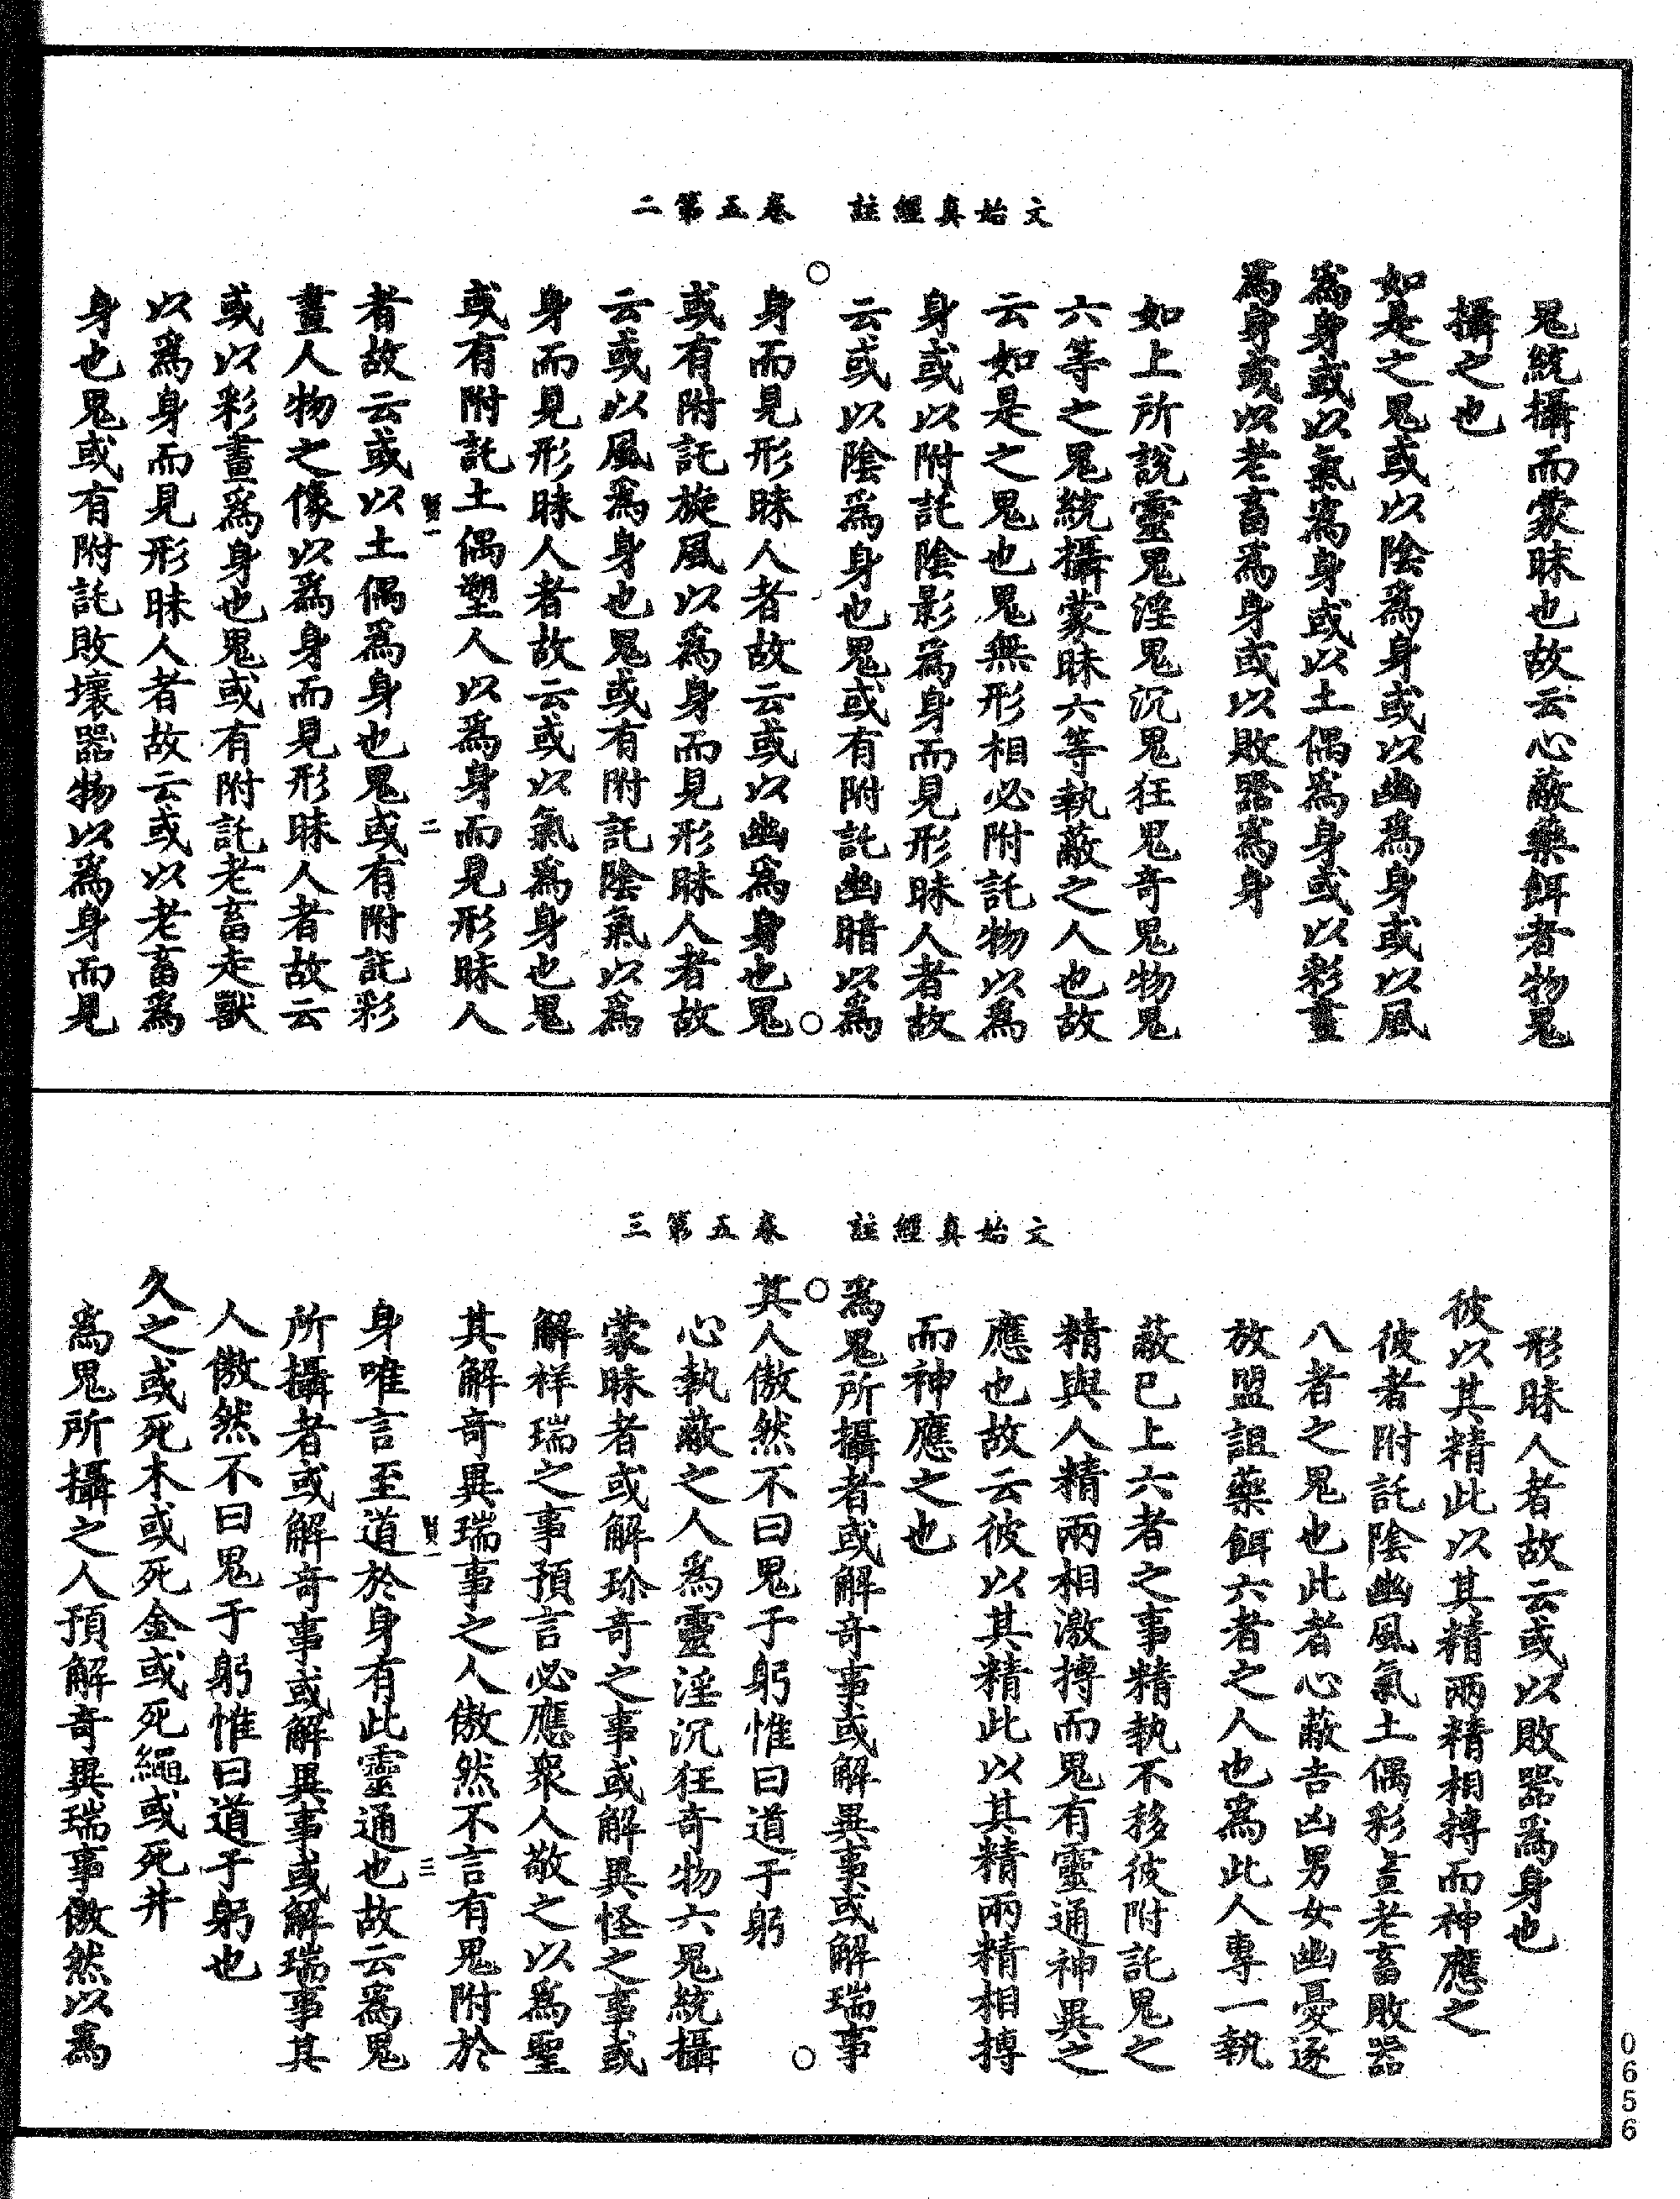 文始真經註　卷五第二
鬼統攝而蒙昧也故云心蔽藥餌者物鬼
攝之也
如是之鬼或以陰為身或以幽為身或以風
為身或以氣為身或以土偶為身或以彩畫
為身或以老畜為身或以敗器為身
如上所說靈鬼淫鬼沉鬼狂鬼奇鬼物鬼
六等之鬼統攝蒙昧六等執蔽之人也故
云如是之鬼也鬼無形相必附託物以為
身或以附託陰影為身而見形昧人者故
云或以陰為身也鬼或有附託幽暗以為
身而見形昧人者故云或以幽為身也鬼
或有附託旋風以為身而見形昧人者故
云或以風為身也鬼或有附託陰氣以為
身而見形昧人者故云或以氣為身也鬼
或有附託土偶塑人以為身而見形昧人
賢一　二
者故云或以土偶為身也鬼或有附託彩
畫人物之像以為身而見形昧人者故云
或以彩畫為身也鬼或有附託老畜走獸
以為身而見形昧人者故云或以老畜為
身也鬼或有附託敗壞器物以為身而見
文始真經註　卷五第三
形昧人者故云或以敗器為身也
彼以其精此以其精兩精相搏而神應之
彼者附託陰幽風氣土偶彩畫老畜敗器
八者之鬼也此者心蔽吉凶男女幽憂逐
放盟詛藥餌六者之人也為此人專一執
蔽已上六者之事精執不移彼附託鬼之
精與人精兩相激搏而鬼有靈通神異之
應也故云彼以其精此以其精兩精相搏
而神應之也
為鬼所攝者或解奇事或解異事或解瑞事
其人傲然不曰鬼于躬惟曰道于躬
心執蔽之人為靈淫沉狂奇物六鬼統攝
蒙昧者或解珍奇之事或解異怪之事或
解祥瑞之事預言必應眾人敬之以為聖
其解奇異瑞事之人傲然不言有鬼附於
賢一　三
身唯言至道於身有此靈通也故云為鬼
所攝者或解奇事或解異事或解瑞事其
人傲然不曰鬼于躬惟曰道于躬也
久之或死木或死金或死繩或死井
為鬼所攝之人預解奇異瑞事傲然以為
0656